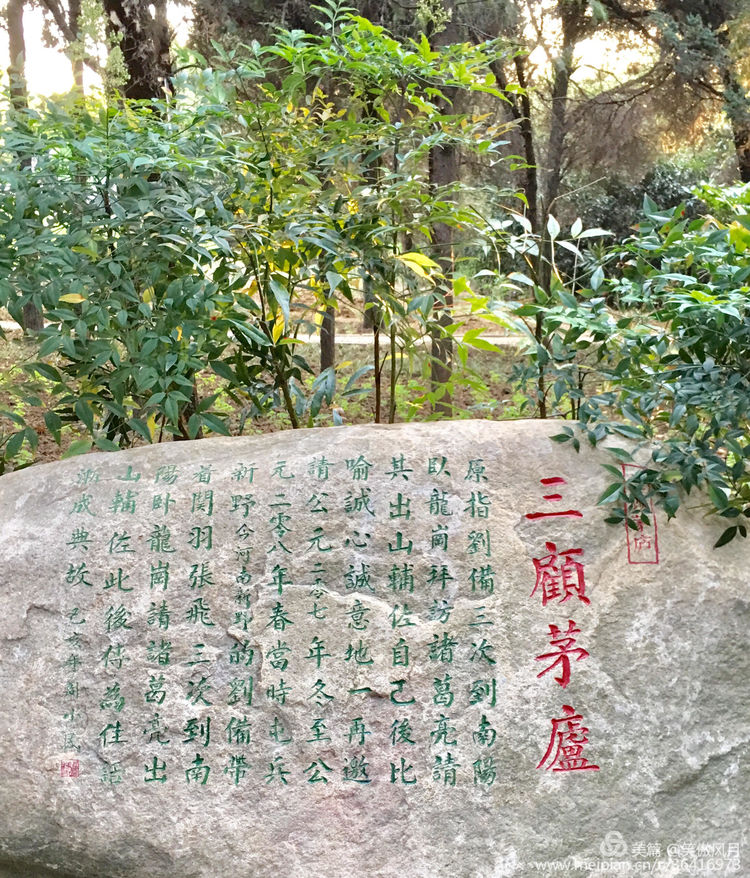 三顧茅廬
原指劉備三次到南陽
臥龍崗拜訪諸葛亮請
其出山輔佐自己後比
喻誠心誠意地一再邀
請公元二零七年冬至公
元二零八年春當時屯兵
新野今河南新野的劉備帶
着関羽張飛三次到南
陽卧龍崗請諸葛亮出
山輔佐此後傳為佳話
漸成典故 己亥年
美篇 @笑傲风月
www.meipian.cn/c/36416973